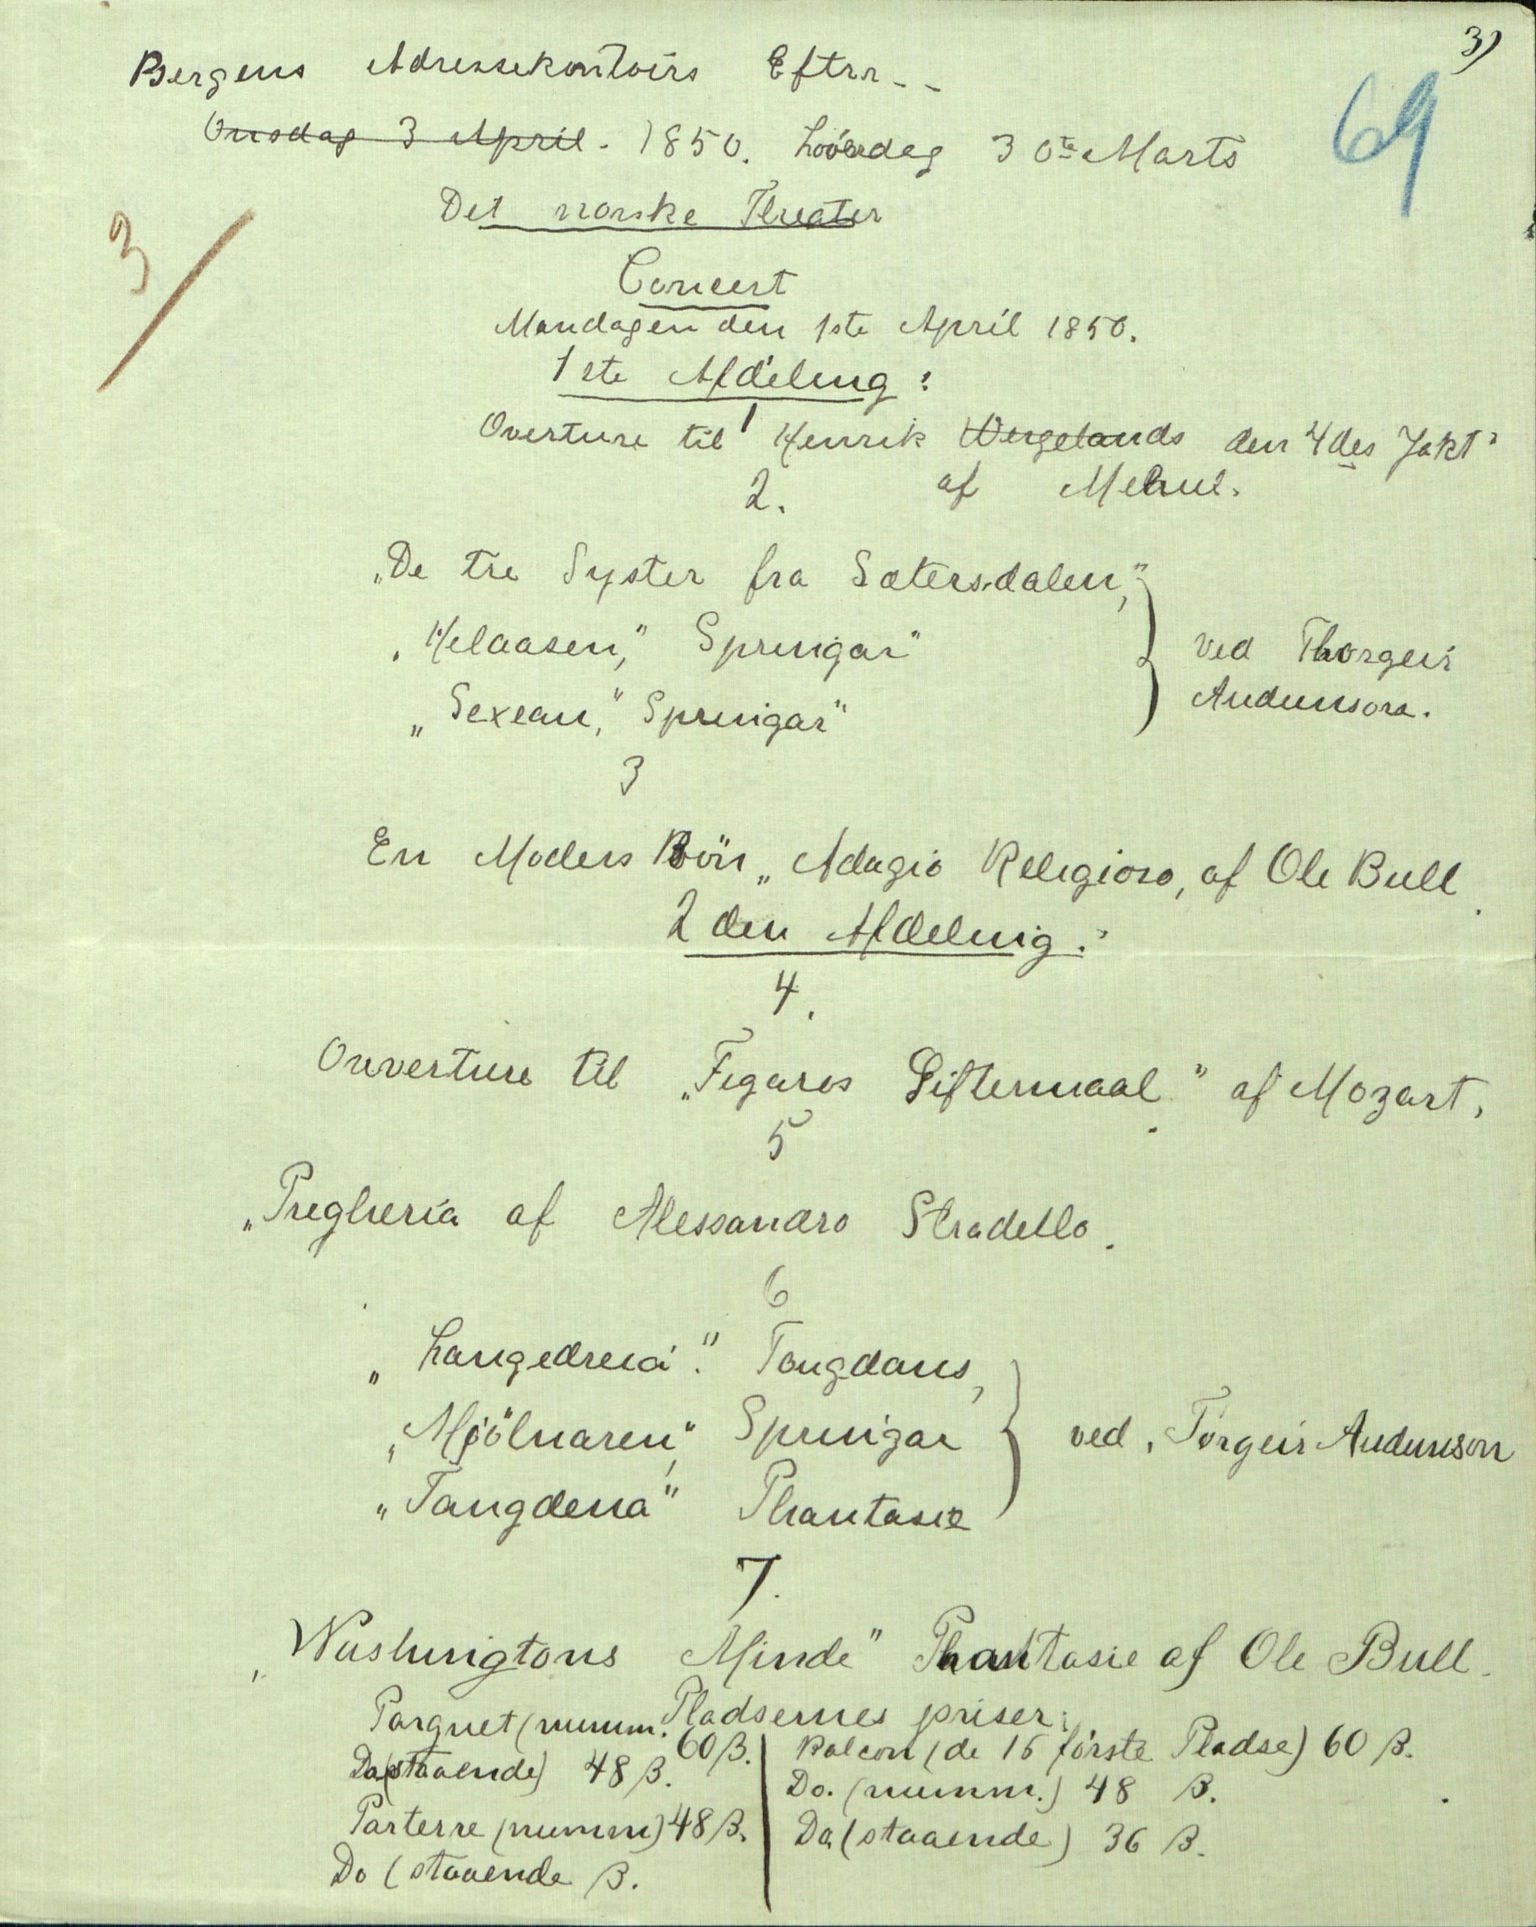 3)
Bergens Adressekontoirs Eftrr--
Onsdag 3 April. 1850. Löverdag 30te Marts
69
Det norske Theater
3
Concert
Mandagen den 1ste April 1850.
1ste Afdeling:
1
Overture til Henrik Wergelands den 4des Jakt"
2. af Mehul.
„De tre Syster fra Sætersdalen,"
„Helaasen," Springar"
ved Thorgeir
„Sexean," Springar"
Audunson.
3
En Moders Bön „ Adagio Religioso, af Ole Bull
2den Afdeling:
4.
Ouverture til „Figaros Giftermaal" af Mozart,
5
„Preghieria af Alessandro Stradello.
6
„Langedreia". Tougdans,
„Mjölnaren," Springar ved, Torgeir Audunson
„Tougdena" Phantasie
7.
„Washingtons Minde" Phantasie af Ole Bull.
Pladsernes priser:
Parquet (numm. 60 β. Balcon (de 15 förste Pladse) 60 β.
Do (staaende) 48 β. Do. (numm.) 48 β.
Parterre (numm) 48 β. Do (staaende) 36 β.
Do (staaende β.